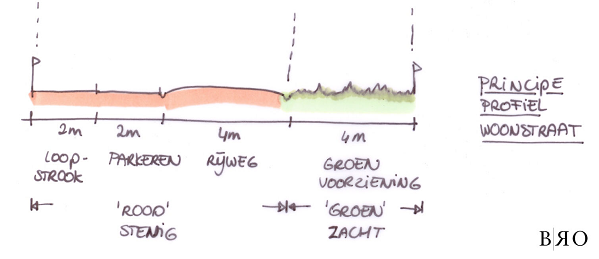 PRINCIPE
PROFIEL
WOONSTRAAT
2m 2m 4m 4m
LOOP-
STROOK
PARKEREN
RIJWEG
GROEN
VOORZIENING
'ROOD'
STENIG
'GROEN'
ZACHT
BRO